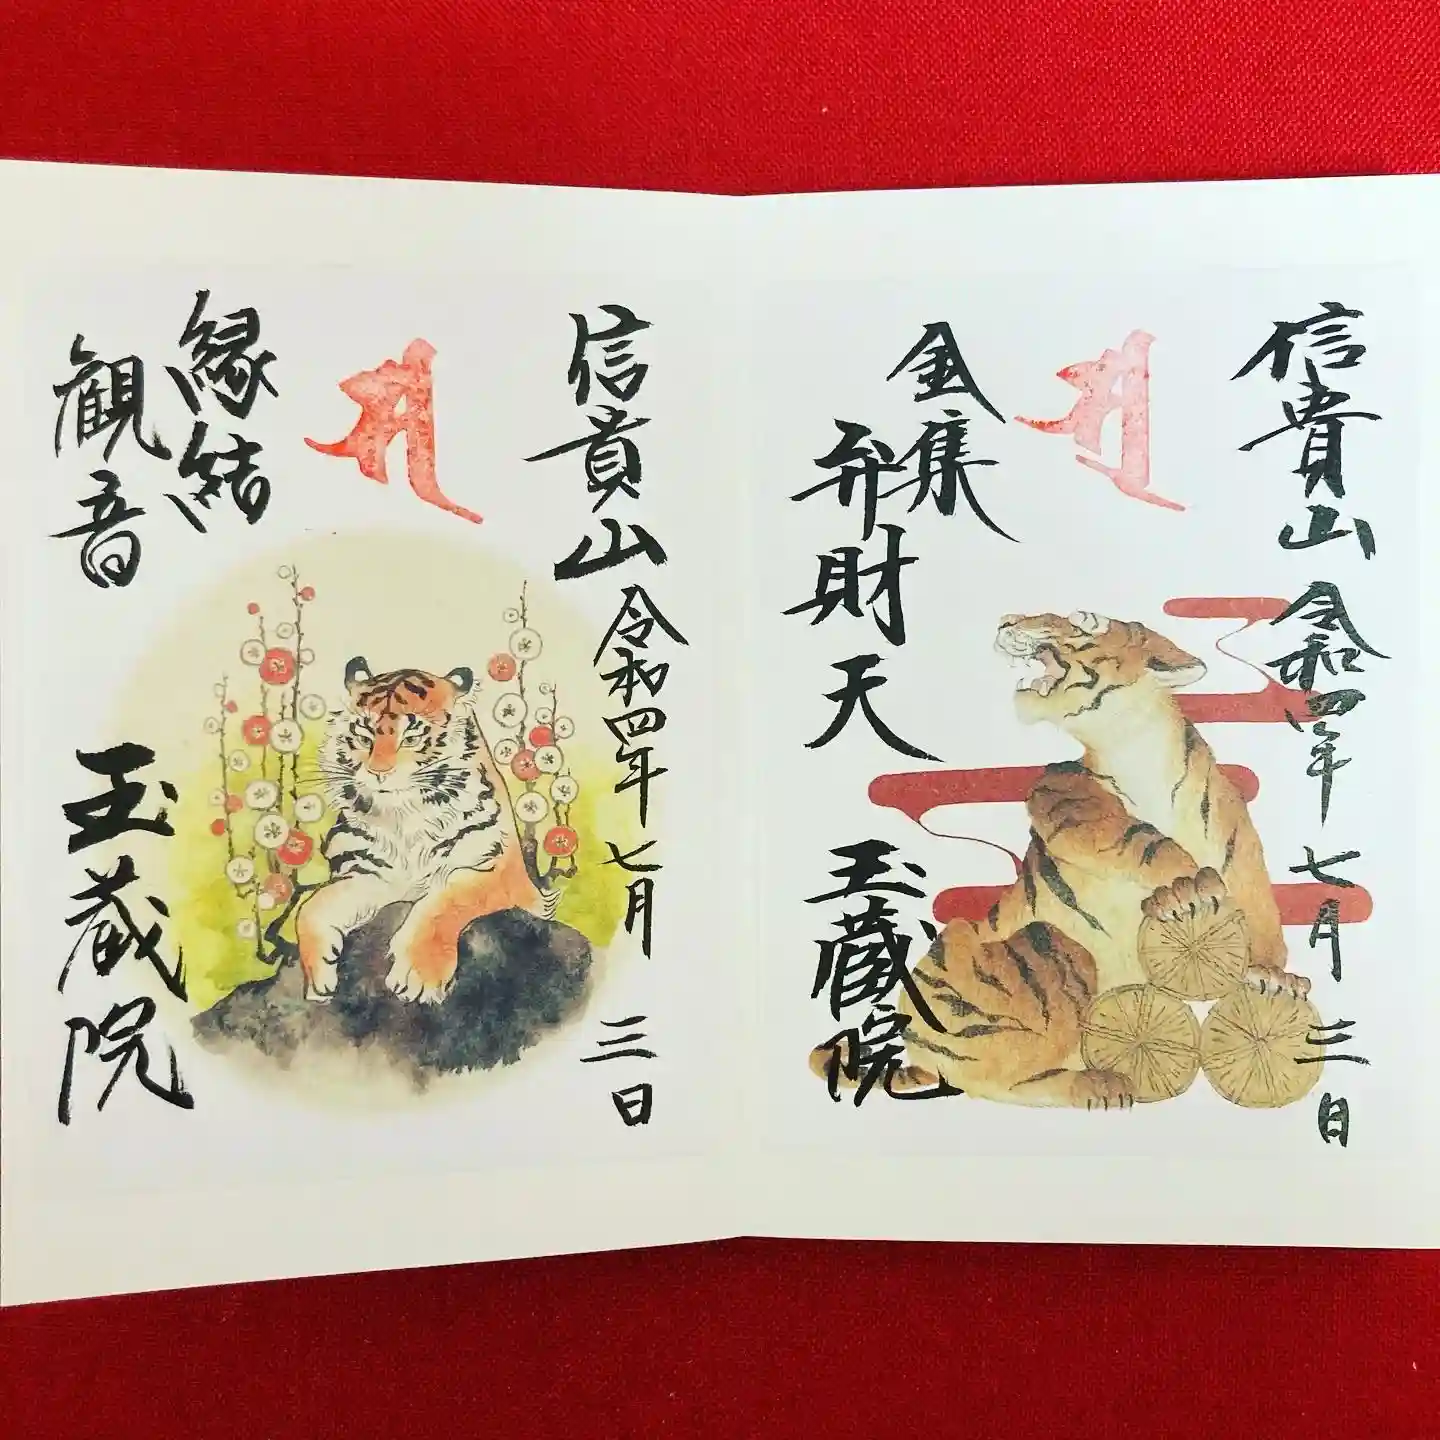 信貴山 令和四年 七月 三日
金集
弁財天
玉蔵院
信貴山 令和四年 七月 三日
縁結
観音
玉蔵院